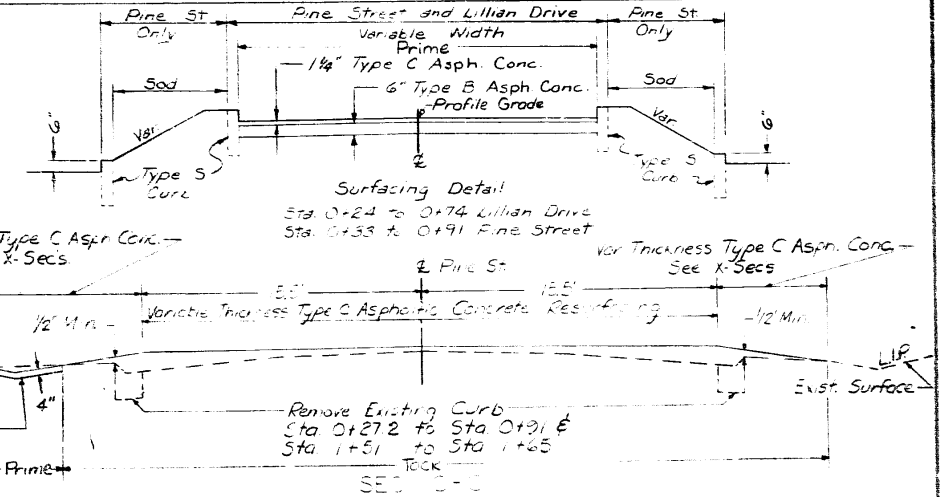 Pine St
Only
Pine Street and Lillian Drive
Variable Width
Prime
Pine St
Only
1¼" Type C Asph. Conc.
6" Type B Asph. Conc.
-Profile Grade
Sod
Sod
Var
Var
6"
6"
Type S
Curb
Type S
Curb
℄
Surfacing Detail
Sta. 0+24 to 0+74 Lillian Drive
Sta. 0+33 to 0+91 Pine Street
Type C Asph Conc.
X-Secs
Var Thickness Type C Asph. Conc.
See X-Secs
℄ Pine St.
15.5'
Variable Thickness Type C Asphaltic Concrete Resurfacing
½" Min.
½" Min.
4"
L.I.P.
Exist. Surface
Remove Existing Curb
Sta. 0+27.2 to Sta. 0+91 &
Sta. 1+51 to Sta 1+65
Prime
Tack